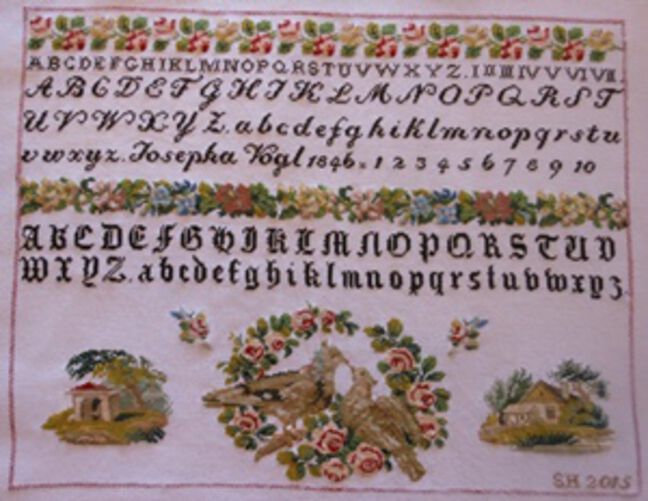 ABCDEFGHIKLMNOPQRSTUVWXYZ.I II III IV V VI VII.
ABCDEFGHIKLMNOPQRST
UVWXYZ.abcdefghiklmnopqrstu
vwxyz.Josepha Vogl 1846. 1 2 3 4 5 6 7 8 9 10
ABCDEFGHIKLMNOPQRSTUV
WXYZ.abcdefghiklmnopqrstuvwxyz
SH 2015